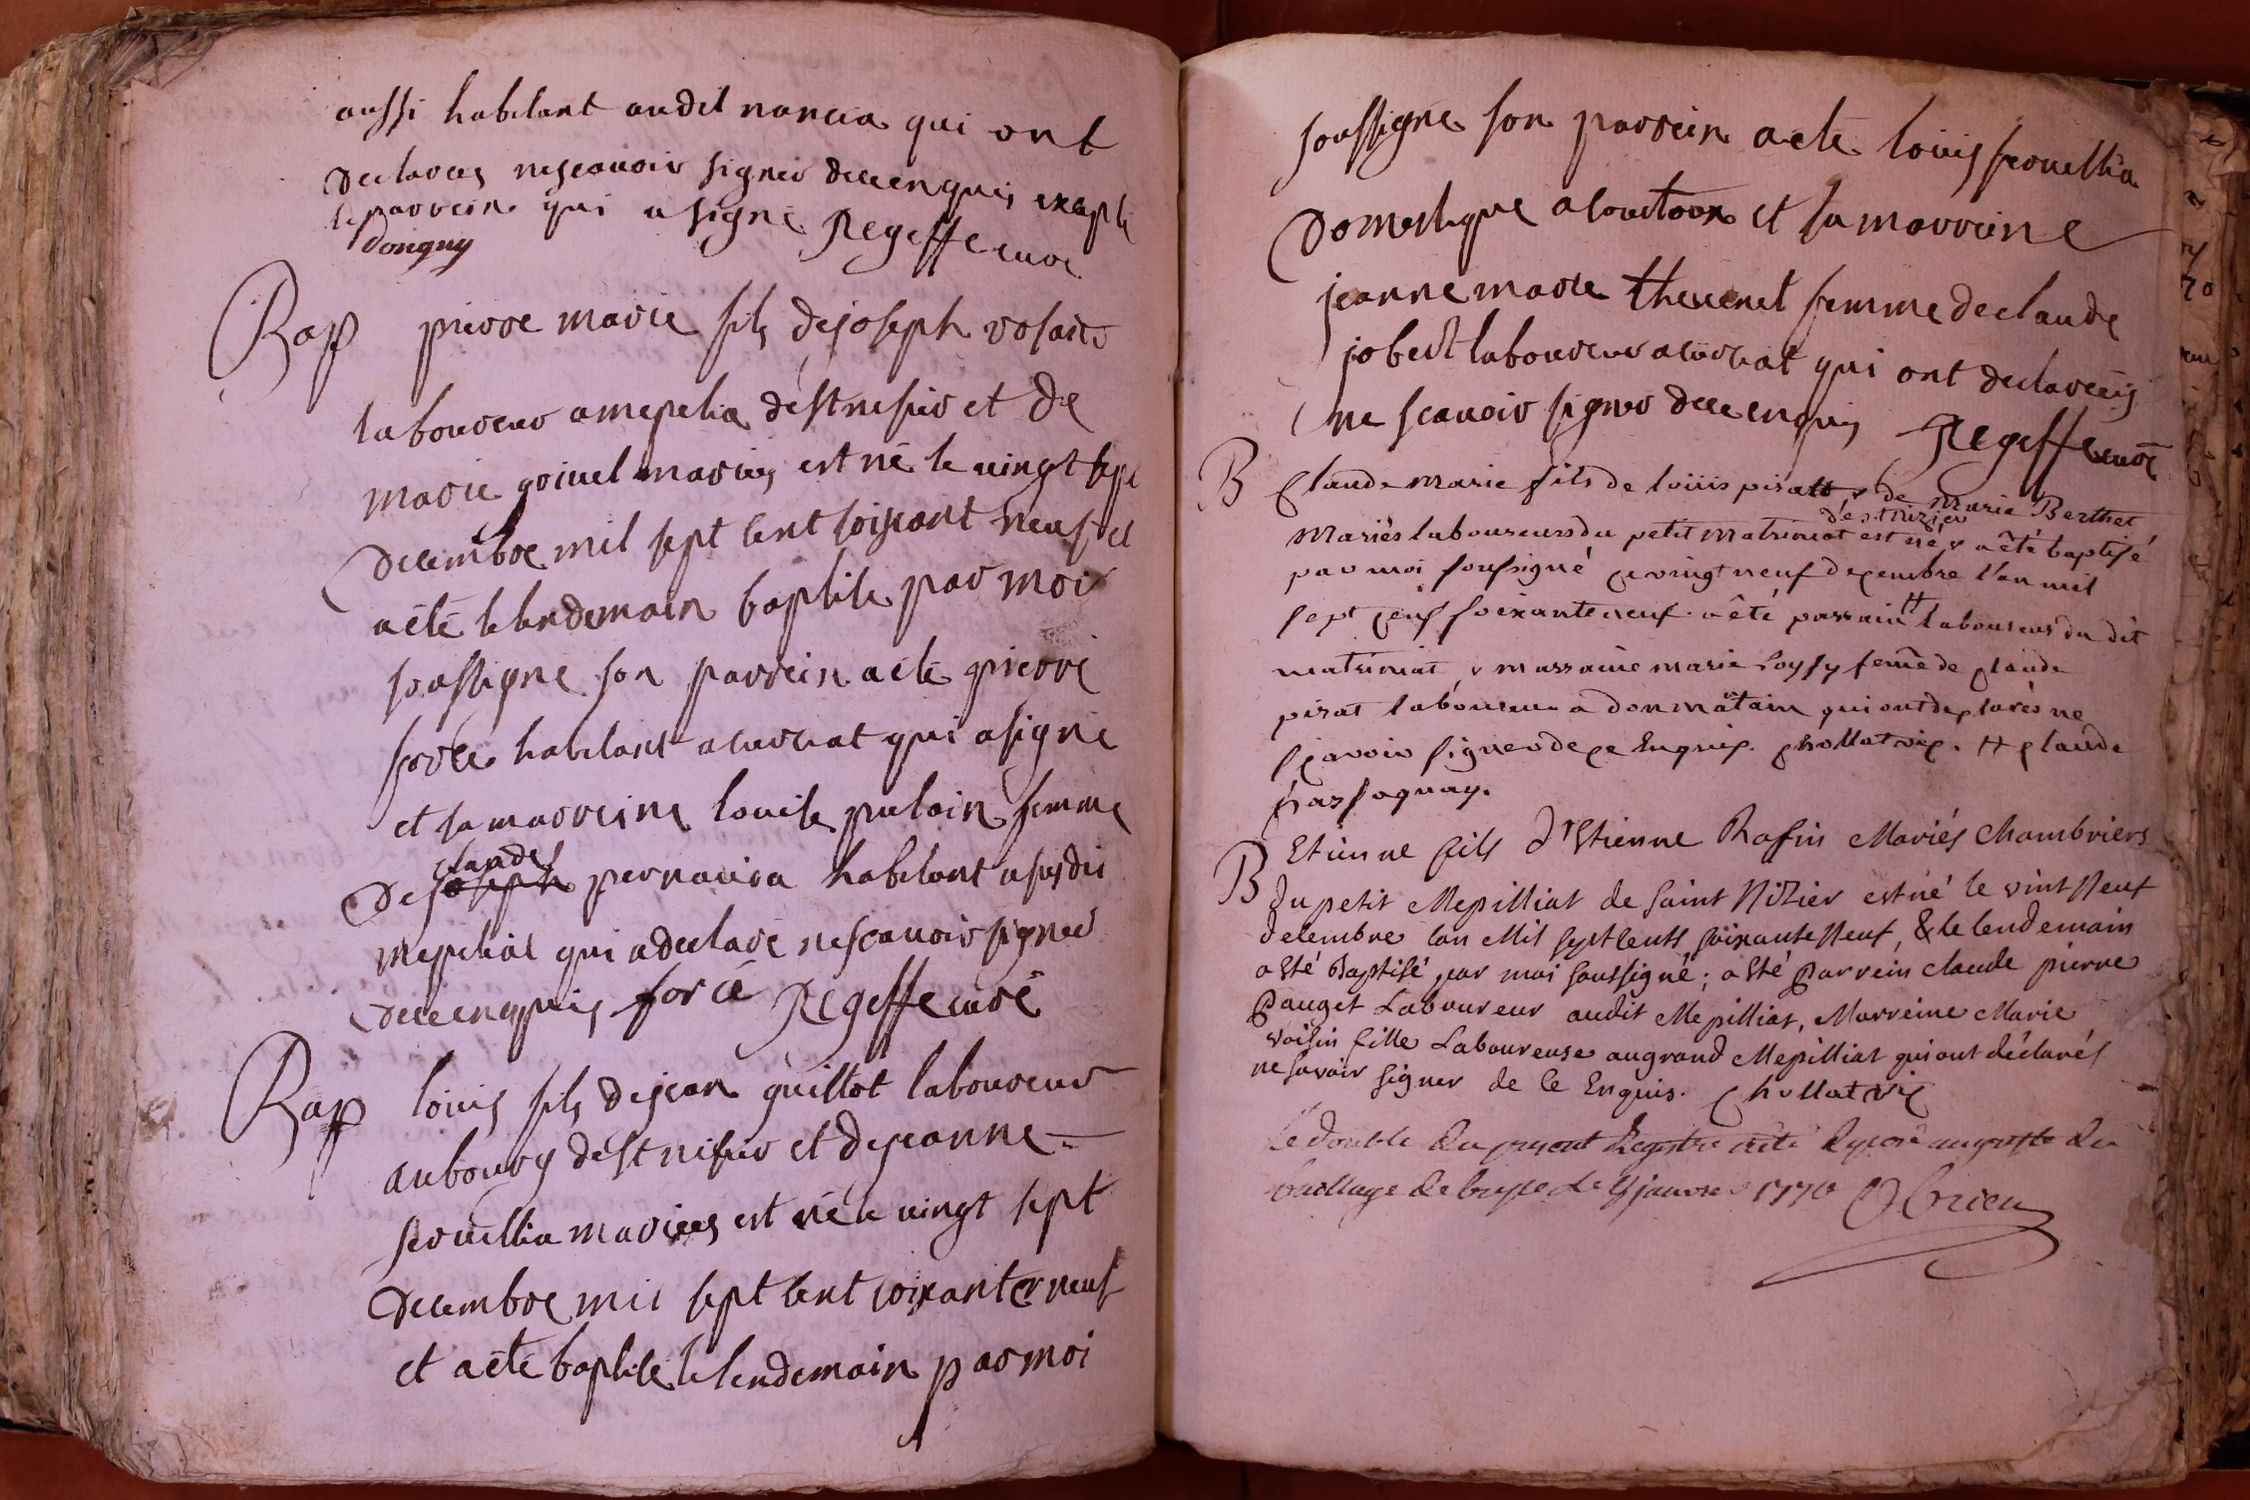 aussi habitant audit nancia qui ont
declarees nescavoir signer dece enquis excepte
le parrein qui a signé Regeffe curé
dorigny
Bap pierre marie fils de joseph
laboureur a mepelia de st nisier et de
marie goivel maries est né le vingt sept
decembre mil sept cent soixant neuf et
a été le lendemain baptisé par moi
soussigné son parrein a été pierre
forée habitant a curciat qui a signé
et sa marreine louise pulain femme
claude
de joseph pernauira habitant a susdit
mepeliat qui a declaré nescavoir signer
dece enquis forcé Regeffe curé
Bap louis fils de jean guillot laboureur
au bourg de st nisier et de jeanne
servellia mariees est né le vingt sept
decembre mil sept cent soixante neuf
et a été baptisé le lendemain par moi
soussigné son parrein a été louis
domestique a et sa marreine
jeanne marie thevenet femme de claude
jobert laboureur a curciat qui ont declareés
ne scavoir signer dece enquis Regeffe curé
B Claude marie fils de loüis pirat & de marie Berthet
de st nizier
mariés laboureurs du petit matriniat est né & a été baptisé
par moi soussigné ce vingt neuf decembre l'an mil
sept cens soixante neuf. a été parrain # laboureur du dit
matriniat, & marraine marie Loysy femē de claude
pirat laboureur a donmatain qui ont declarés ne
scavoir signer de ce Enquis. chollat vic. # claude
B Etienne fils d'Etienne Rafin Mariés Chambriers
du petit Mepilliat de saint Nizier est né le vint Neuf
decembre l'an Mil sept cents soixante Neuf, & le lendemain
a été Baptisé par moi soussigné; a été Parrein claude pierre
Pauget Laboureur audit Mepilliat, Marreine Marie
voisin fille Laboureuse au grand Mepilliat qui ont déclarés
ne savoir signer de ce Enquis. Chollat vic
Le double du present Registre a été deposé au greffe du
bailliage de bresse le janvier 1770